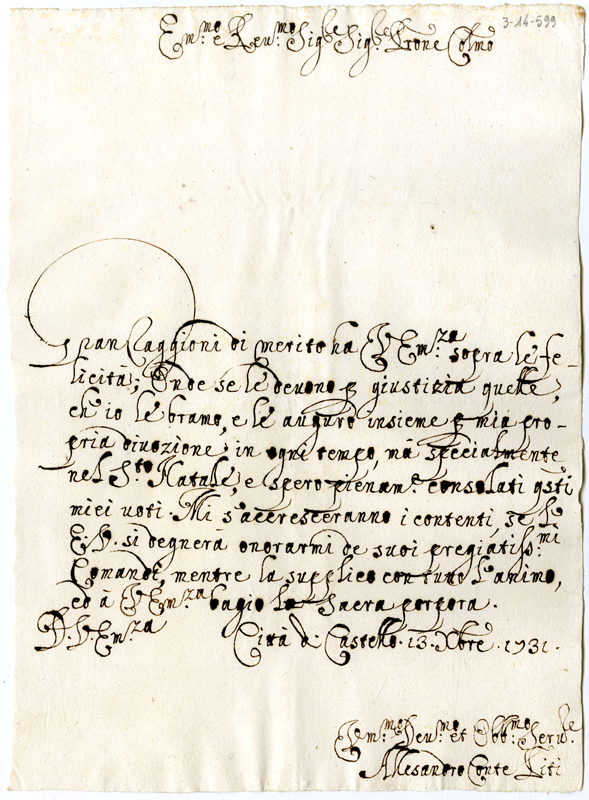 3-14-599
Em.mo e Rev.mo Sig.re Sig.re Prone Colmo
Gran Raggioni di merito ha V. Em.za sopra le fe-
licità; Onde se le devono p giustizia quelle,
ch' io le bramo, e le auguro insieme p mia pro-
pria divozione in ogni tempo, mà specialmente
nel S.to Natale, e spero pienam.e consolati qsti
miei voti. Mi s'accresceranno i contenti, se l'
E. V. si degnerà onorarmi de suoi pregiatiss.mi
Comandi, mentre la supplico con tutto l'animo,
ed à V. Em.za bagio la Sacra porpora.
D. V. Em.za Città di Castello. 13. Xbre. 1731.
Um.mo Dev.mo et Obb.mo Serv.re
Alesandro Conte Titi